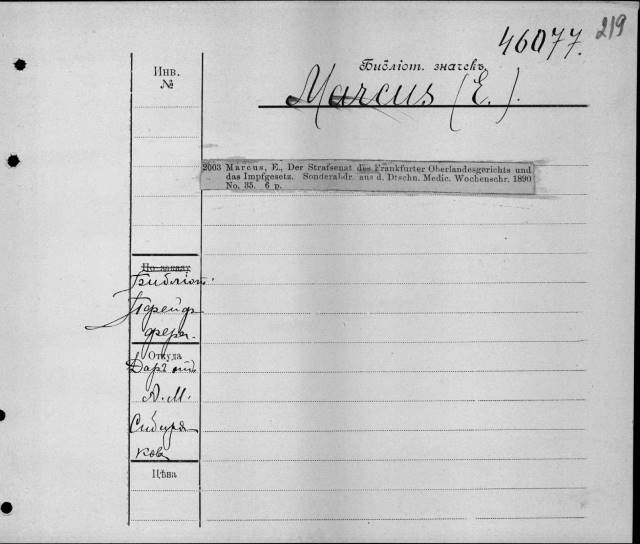 46077.
219
Библіот. значекъ
Marcus (E.).
Инв.
№
2003 Marcus, E., Der Strafsenat des Frankfurter Oberlandesgerichts und
das Impfgesetz. Sonderabdr. aus d. Dtschn. Medic. Wochenschr. 1890
No. 35. 6 p.
По заказу
Библіот.
Пфейф
фера.
Откуда
Даръ отъ
А. М.
Сибиря
кова
Цѣна